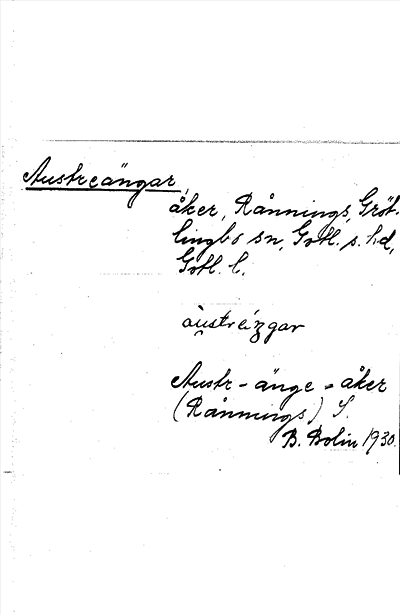 Austreängar,
åker, Rånnings, Gröt-
lingbo sn, Gotl. s. hd,
Gotl. l.
àu̯streiŋgar
Austr-änge-åker
(Rånnings) S.
B. Bolin 1930.